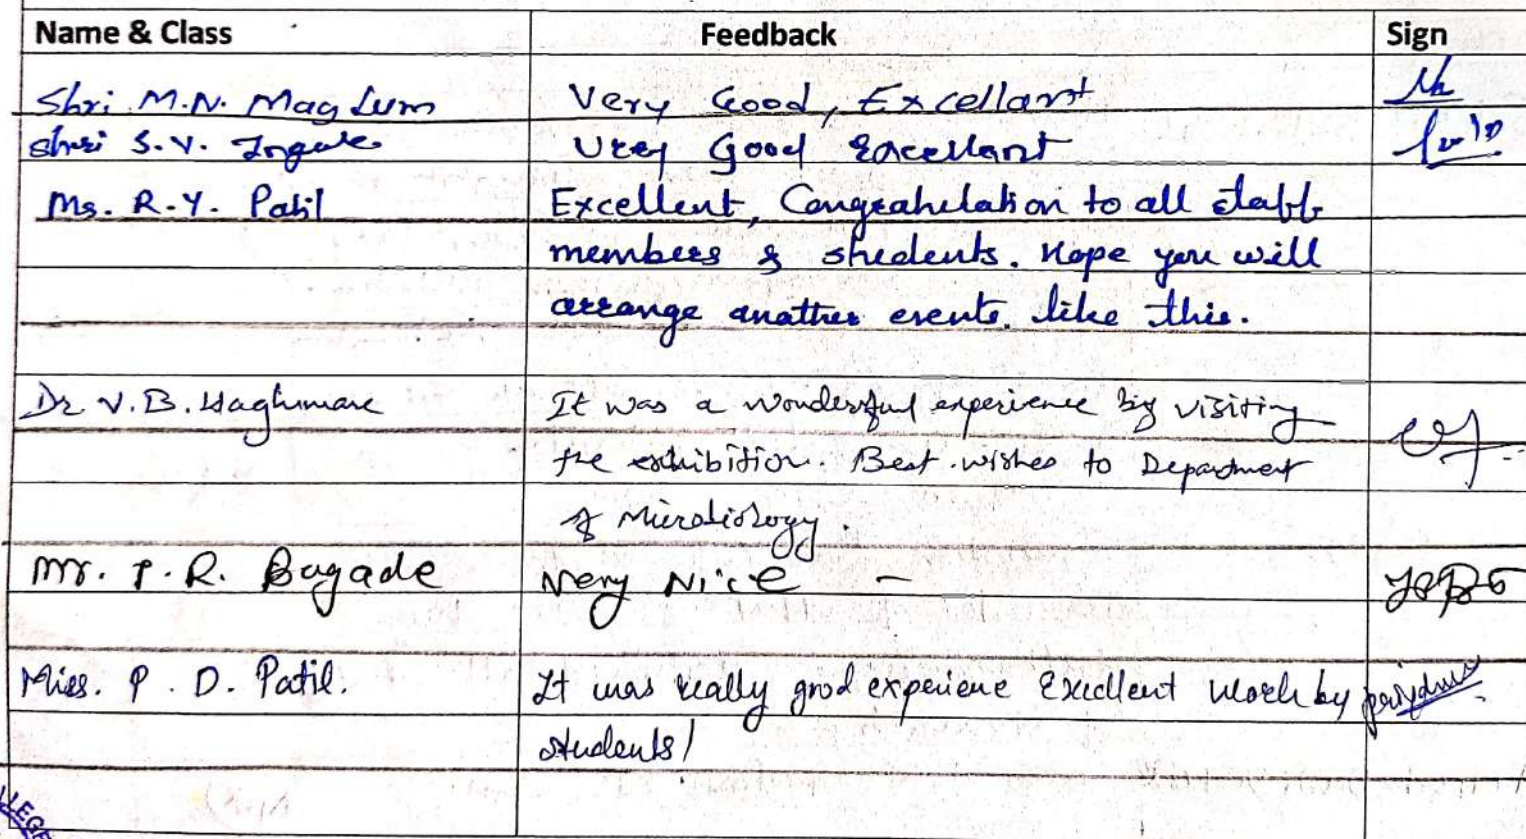 Name & Class Feedback Sign
Shri M.N. Magdum Very Good, Excellant
Shri S.V. Ingale Vrey Good Excellant
Ms. R.Y. Patil Excellent, Congrahulation to all staff
members & students. Hope you will
arrange anather events. like this.
Dr V.B. Waghmare It was a wonderful experience by visiting
the exhibition. Best wishes to Department
of Microbiology.
Mr. P.R. Bagade Very Nice –
Miss. P. D. Patil. It was really good experience Excellent work by
students!